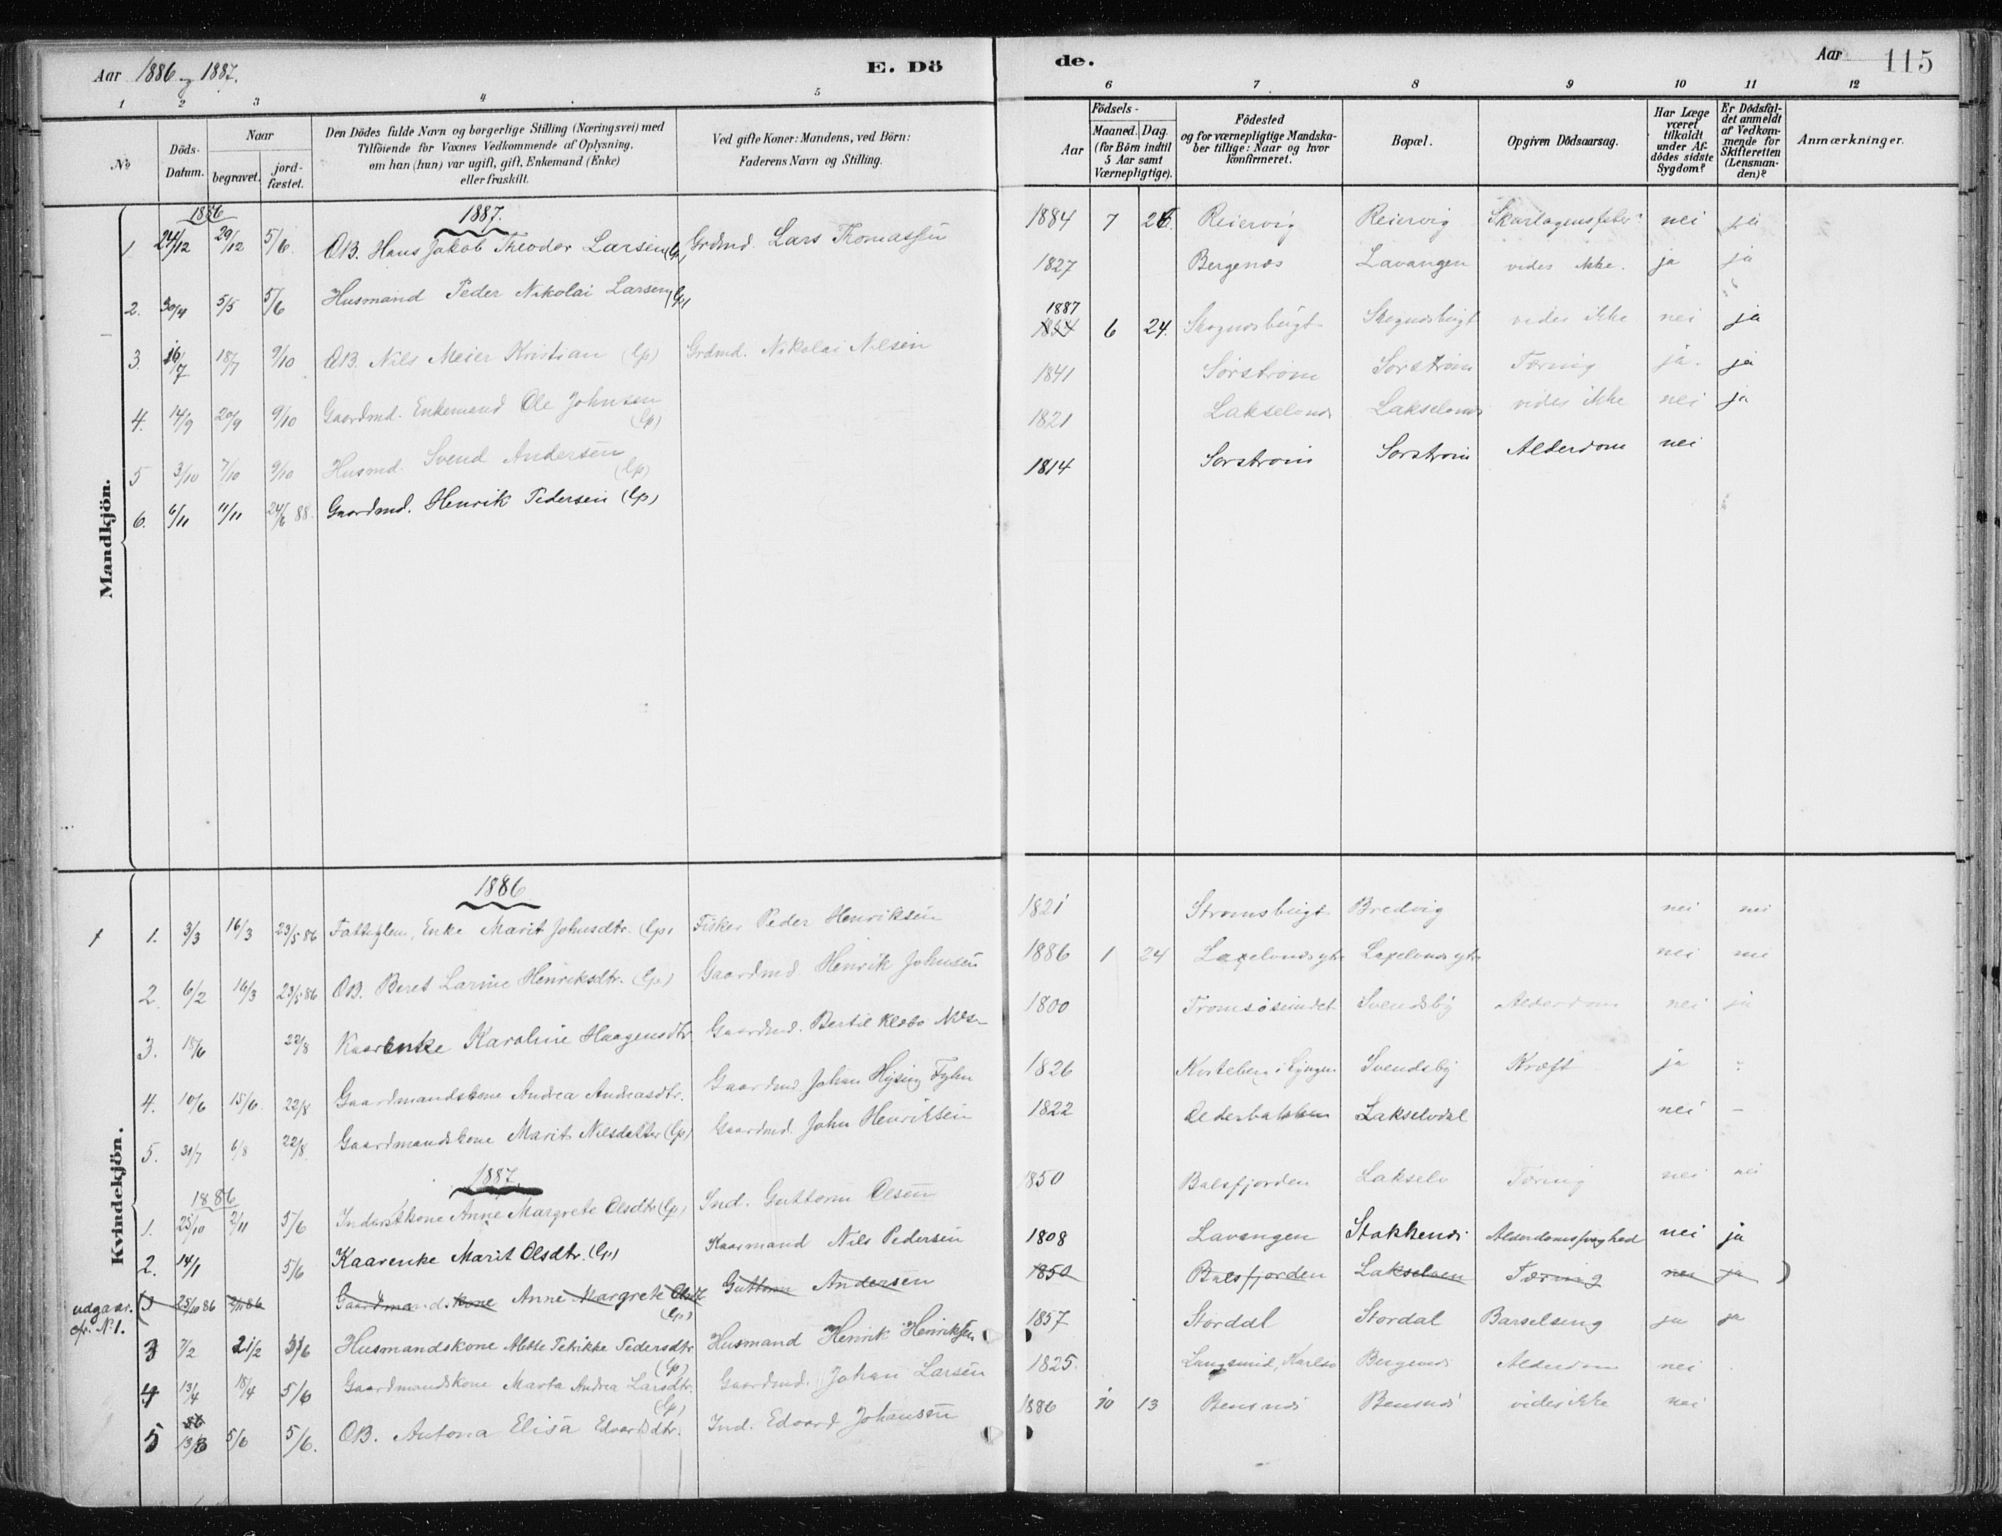 Aar 1886 og 1887. E. Dö de. Aar 115
1 2 3 4 5 6 7 8 9 10 11 12
No Döds-Datum. Naar begravet. jord-fæstet. Den Dödes fulde Navn og borgerlige Stilling (Næringsvei) med Tilföiende for Voxnes Vedkommende af Oplysning, om han (hun) var ugift, gift, Enkemand (Enke) eller fraskilt. Ved gifte Koner: Mandens, ved Börn: Faderens Navn og Stilling. Födsels- Aar Maaned. Dag. (for Börn indtil 5 Aar samt Værnepligtige). Födested og for værnepligtige Mandskaber tillige: Naar og hvor konfirmeret. Bopæl. Opgiven Dödsaarsag. Har Læge været tilkaldt under Afdödes sidste Sygdom? Er Dödsfaldet anmeldt af Vedkommende for Skifteretten (Lensmanden)? Anmærkninger.
Mandkjön.
1886 1887.
1 24/12 29/12 5/6 ØB. Hans Jakob Theodor Larsen (Lp) Grdmd. Lars Thomassen 1884 7 26 Reiervig Reiervig nei ja
2. 30/4 5/5 5/6 Husmand Peder Nikolai Larsen (Lp) 1827 Bergenæs Lavangen vides ikke. ja ja
3. 16/7 18/7 9/10 ØB. Nils Meier Kristian (Lp) Grdmd. Nikolai Nilsen 1887 6 24 vides ikke nei ja
4. 14/9 20/9 9/10 Gaardmd. Enkemand Ole Johnsen (Lp) 1841 Sørstrøm Sørstrøm Tæring ja. ja
5 3/10 7/10 9/10 Husmd. Svend Andersen (Lp) 1821 vides ikke nei ja
6. 6/11 11/11 24/6 88. Gaardmd. Henrik Pedersen (Lp) 1814 Sørstrøm Sørstrøm Alderdom nei
Kvindekjön.
1886
1. 3/3 16/3 23/5 86 Enke Marit Johnsdtr. (Lp) Fisker Peder Henriksen 1821 Strømsbugt Bredvig nei nei
2 6/2 16/3 23/5 86 ØB. Beret Larine Henriksdtr. (Lp) Gaardmd Henrik Johnsen 1886 1 24 nei nei
3. 18/6 22/8 Kaarenke Karoline Haagensdtr. Gaardmd. Bertil 1800 Tromsøsundet Svendsby Alderdom nei ja
4. 10/6 15/6 22/8 Gaardmandskone Andrea Andreasdtr. Gaardmd Johan Hysing Fyhn 1826 i Lyngen Svendsby Kræft ja
5. 31/7 6/8 22/8 Gaardmandskone Marit Nilsdatter (Lp) Gaardmd. John Henriksen 1822 Olderbakken Lakselvdal nei –
1887
1886
1. 25/10 2/11 5/6 Inderstkone Anne Margrete Olsdtr (Lp) Ind. Guttorm Olsen 1850 Balsfjorden Lakselv Tæring nei nei
2. 14/1 5/6 Kaarenke Marit Olsdtr. (Lp) Kaarmand Nils Pedersen 1808 Lavangen Stokkenæs Alderdomssvaghed nei ja
udgaar. cfr. No 1. (3 25/10 86 2/11 86 Gaardmandskone Anne Margrete Olsdtr (Lp) Guttorm Andersen 1850 Balsfjorden Lakselven Tæring nei ja)
3 7/2 21/2 5/6 Husmandskone Mette Petrikke Pedersdtr (Lp) Husmand Henrik Henriksen 1857 Stordal Stordal Barselseng ja ja
4 13/4 18/4 5/6 Gaardmandskone Marta Andrea Larsdtr. (Lp) Gaardmd. Johan Larsen 1825. Karlsø Bergenæs Alderdom nei
5 86 13/8 5/6 5/6. ØB. Antona Elisa Edvardsdtr. Ind. Edvard Johansen 1886 10 13 Bensnæs Bensnæs vides ikke nei